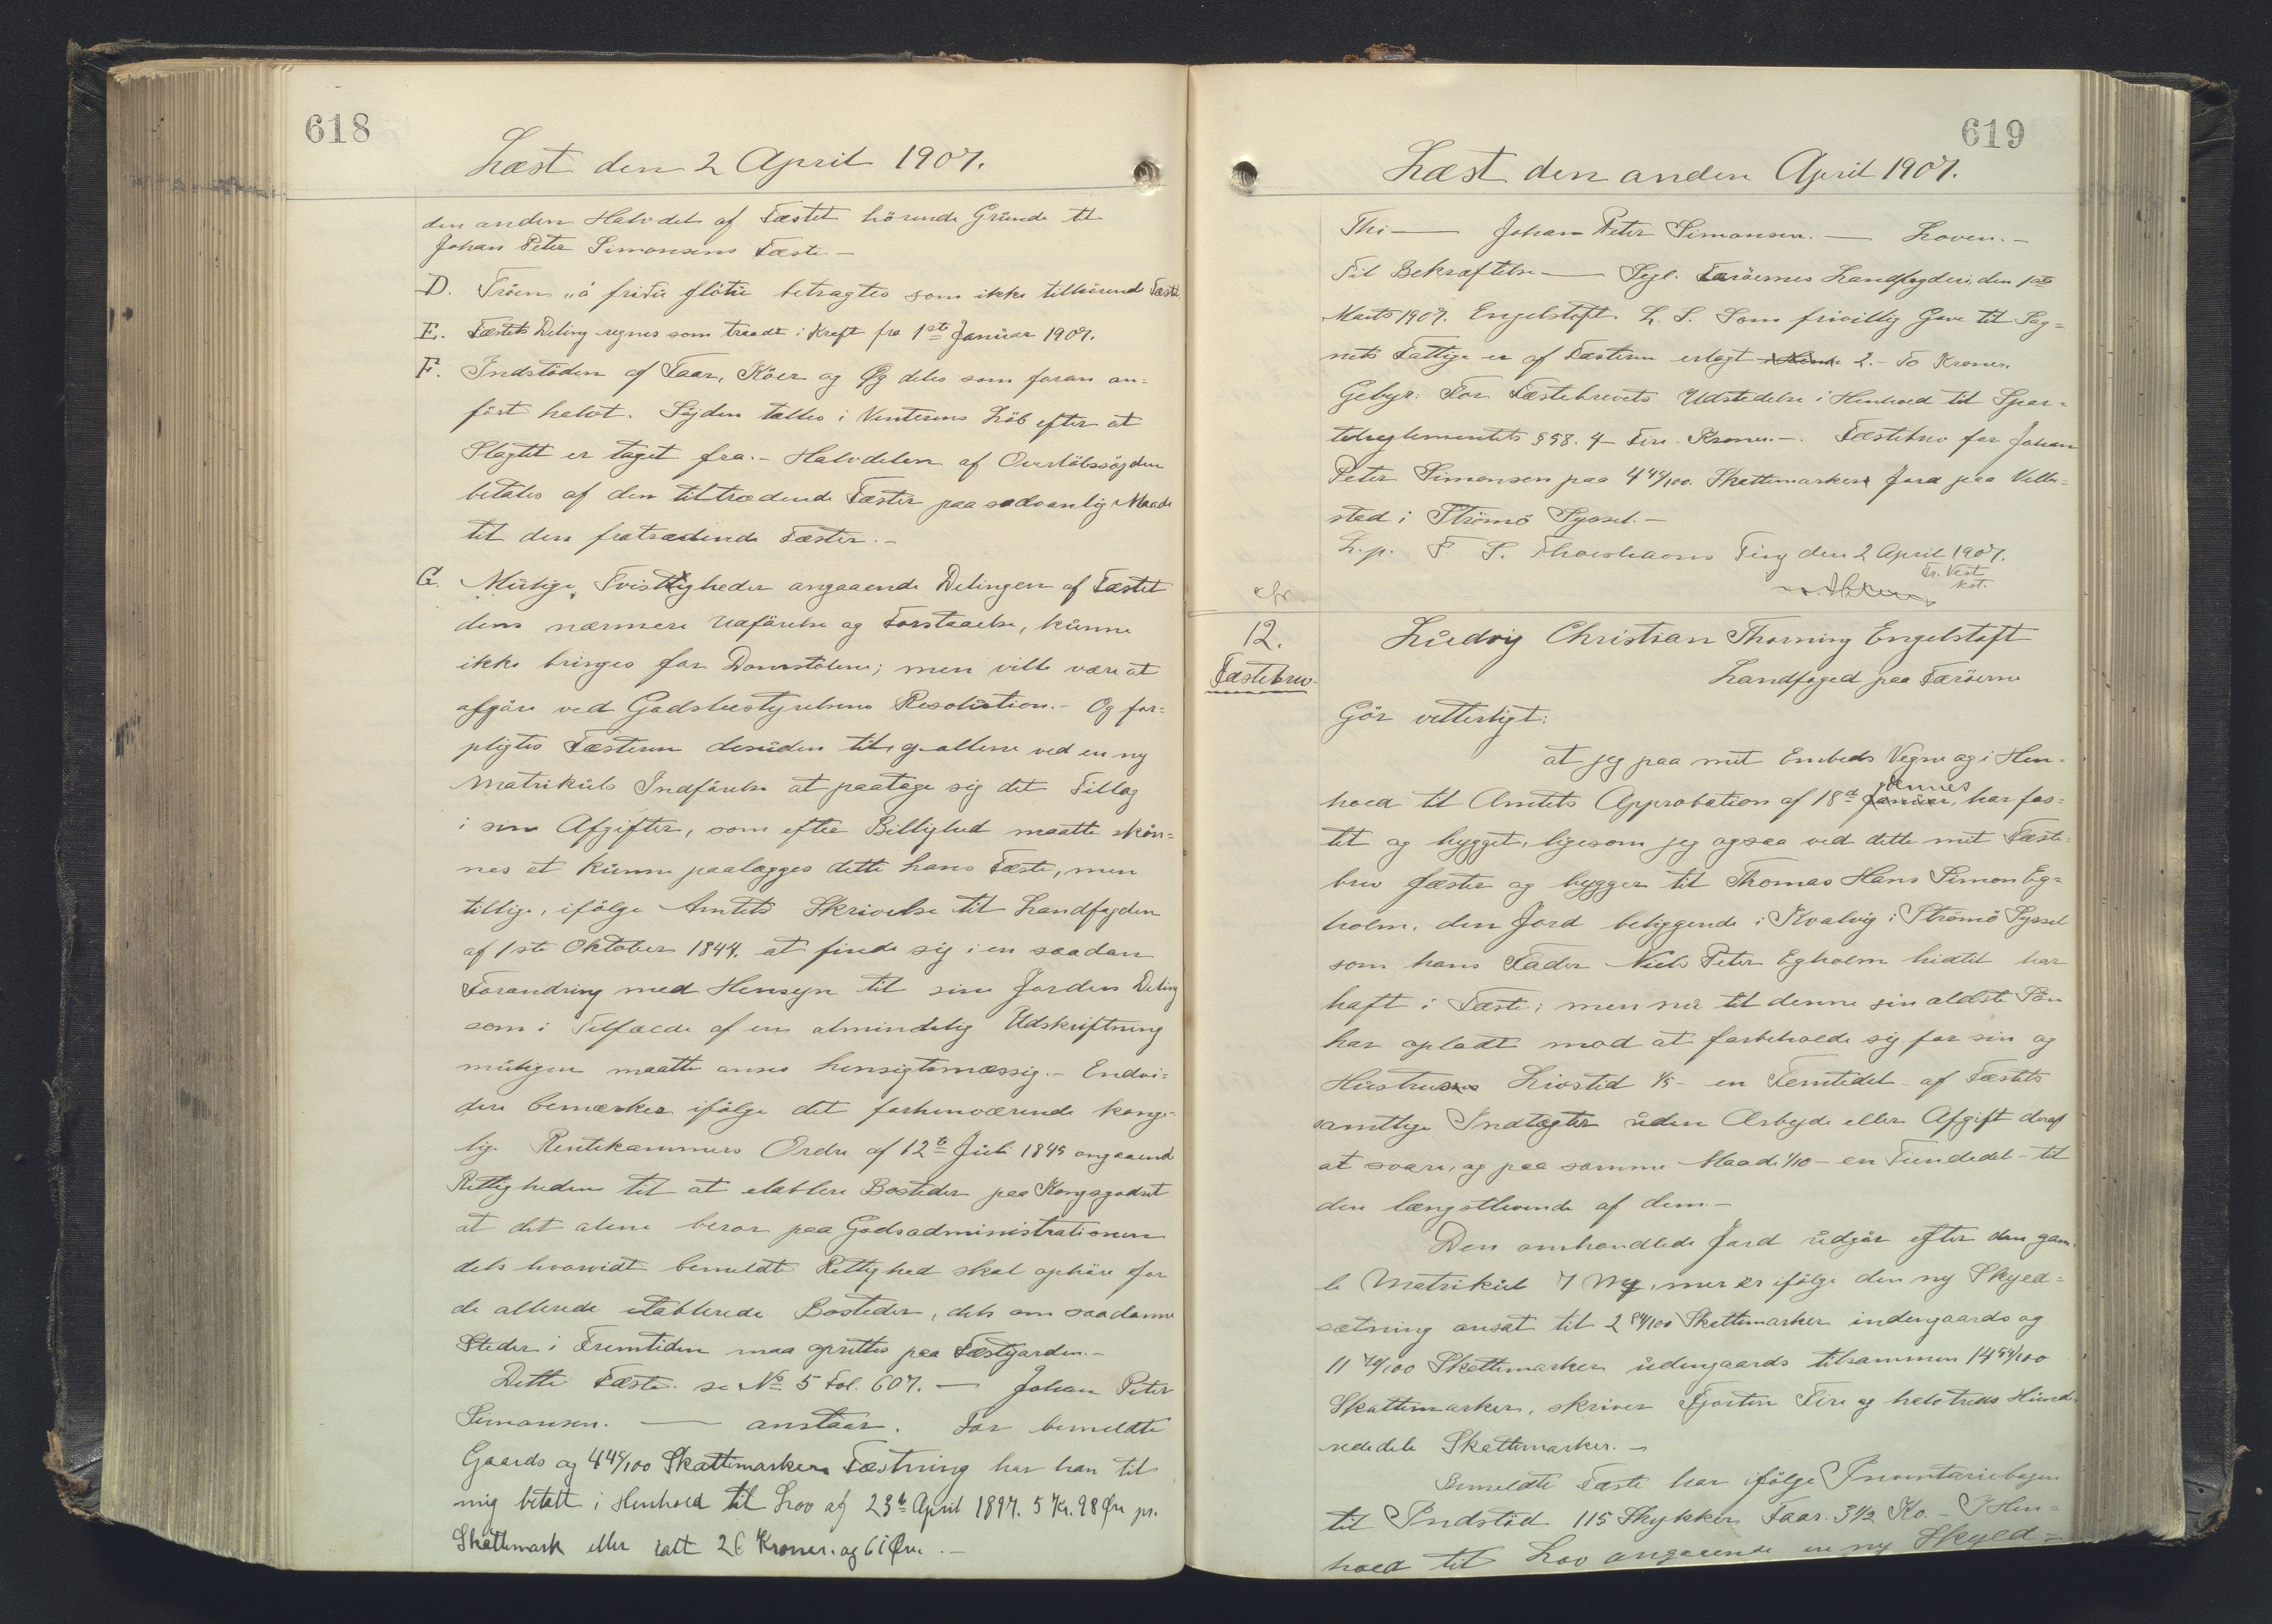 618
Læst den 2 April 1907.
den anden Halvdel af Fæstet hörende Grunde til
Johan Peter Simonsens Fæste. -
D. Tröen "á fridu flötu betragtes som ikke tilhörende Fæstet
E. Fæstets Deling regnes som traadt i Kraft fra 1ste Januar 1907.
F. Indstöden af Faar, Köer og Øg deles som foran an=
fört halvt. Söjden tælles i Vinterens Löb efter at
Slagtet er taget fra. - Halvdelen af Overløbssöjden
betales af den tiltrædende Fæster paa sædvanlig Maade
til den fratrædende Fæster. -
G. Mulige Tvistigheder angaaende Delingen af Fæstet
dens nærmere Udförelse og Forstaaelse, kunne
ikke bringes for Domstolene; men ville være at
afgöre ved Godsbestyrelsens Resolution. - Og for=
pligtes Fæsteren desuden til, ved en ny
Matrikuls Indförelse at paatage sig det Tillæg
i sine Afgifter, som efter Billighed maatte skön=
nes at kunne paalægges dette hans Fæste, men
tillige, ifölge Amtets Skrivelse til Landfogden
af 1ste Oktober 1844. at finde sig i en saadan
Forandring med Hensyn til sine Jorders Deling
som i Tilfælde af en almindelig Udskiftning
muligen maatte anses hensigtsmæssig. - Endvi=
dere bemærkes ifölge det forhenværende konge=
lige Rentekammers Ordre af 12te Juli 1845 angaaende
Rettigheden til at etablere Bosteder paa Kongsgodset
at det alene beror paa Godsadministrationen
dels hvorvidt bemeldte Rettighed skal ophöre for
de allerede etablerede Bosteder, dels om saadanne
Steder i Fremtiden maa oprettes paa Fæstejorden. -
Dette Fæste. se No 5 Fol. 607. - Johan Peter
Simonsen. - anstaar. For bemeldte
Gaards og 4 45/100 Skattemarkers Fæstning har han til
mig betalt i Henhold til Lov af 23de April 1897. 5 Kr. 98 Øre pr.
Skattemark eller ialt 26 Kroner og 61 Øre. -
619
Læst den anden April 1907.
Thi - Johan Peter Simonsen. - Loven. -
Til Bekræftelse - Segl. Færöernes Landfogderi, den 1ste
Marts 1907. Engelstoft. L. S. Som frivillig Gave til Sog=
nets Fattige er af Fæsteren erlagt 2. - To Kroner.
Gebyr: For Fæstebrevets Udstedelse i Henhold til Spor=
telreglementets § 58. 4 - Fire - Kroner. -. Fæstebrev for Johan
Peter Simonsen paa 4 45/100. Skattemarkers Jord paa Velbe=
sted i Strömö Syssel. -
L. p. F S. Thorshavns Ting den 2 April 1907.
cfr.
12.
Fæstebrev.
Ludvig Christian Thorning Engelstoft
Landfoged paa Færöerne
Gör vitterligt:
at jeg paa mit Embeds Vegne og i Hen=
hold til Amtets Approbation af 18de dennes, har fæs=
tet og bygget, ligesom jeg ogsaa ved dette mit Fæste=
brev fæster og bygger til Thomas Hans Simon Eg=
holm, den Jord beliggende i Kvalvig i Strömö Syssel
som hans Fader Niels Peter Egholm hidtil har
haft i Fæste; men nu til denne sin ældste Sön
har opladt mod at forbeholde sig for sin og
Hustrus Livstid 1/5 - en Femtedel - af Fæstets
samtlige Indtægter uden Arbejde eller Afgift deraf
at svare, og paa samme Maade 1/10 - en Tiendedel - til
den længstlevende af dem. -
Den omhandlede Jord udgör efter den gam=
le Matrikul 7 Mk, men er ifölge den ny Skyld=
sætning ansat til 2 84/100 Skattemarker indengaards og
11 70/100 Skattemarker udengaards tilsammen 14 54/100
Skattemarker, skriver Fjorten Fire og halvtreds Hund=
rededele Skattemarker. -
Bemeldte Fæste har ifölge Inventariebogen
til Indstöd 115 Stykker Faar. 3 1/2 Ko. - I Hen=
hold til Lov angaaende en ny Skyld=